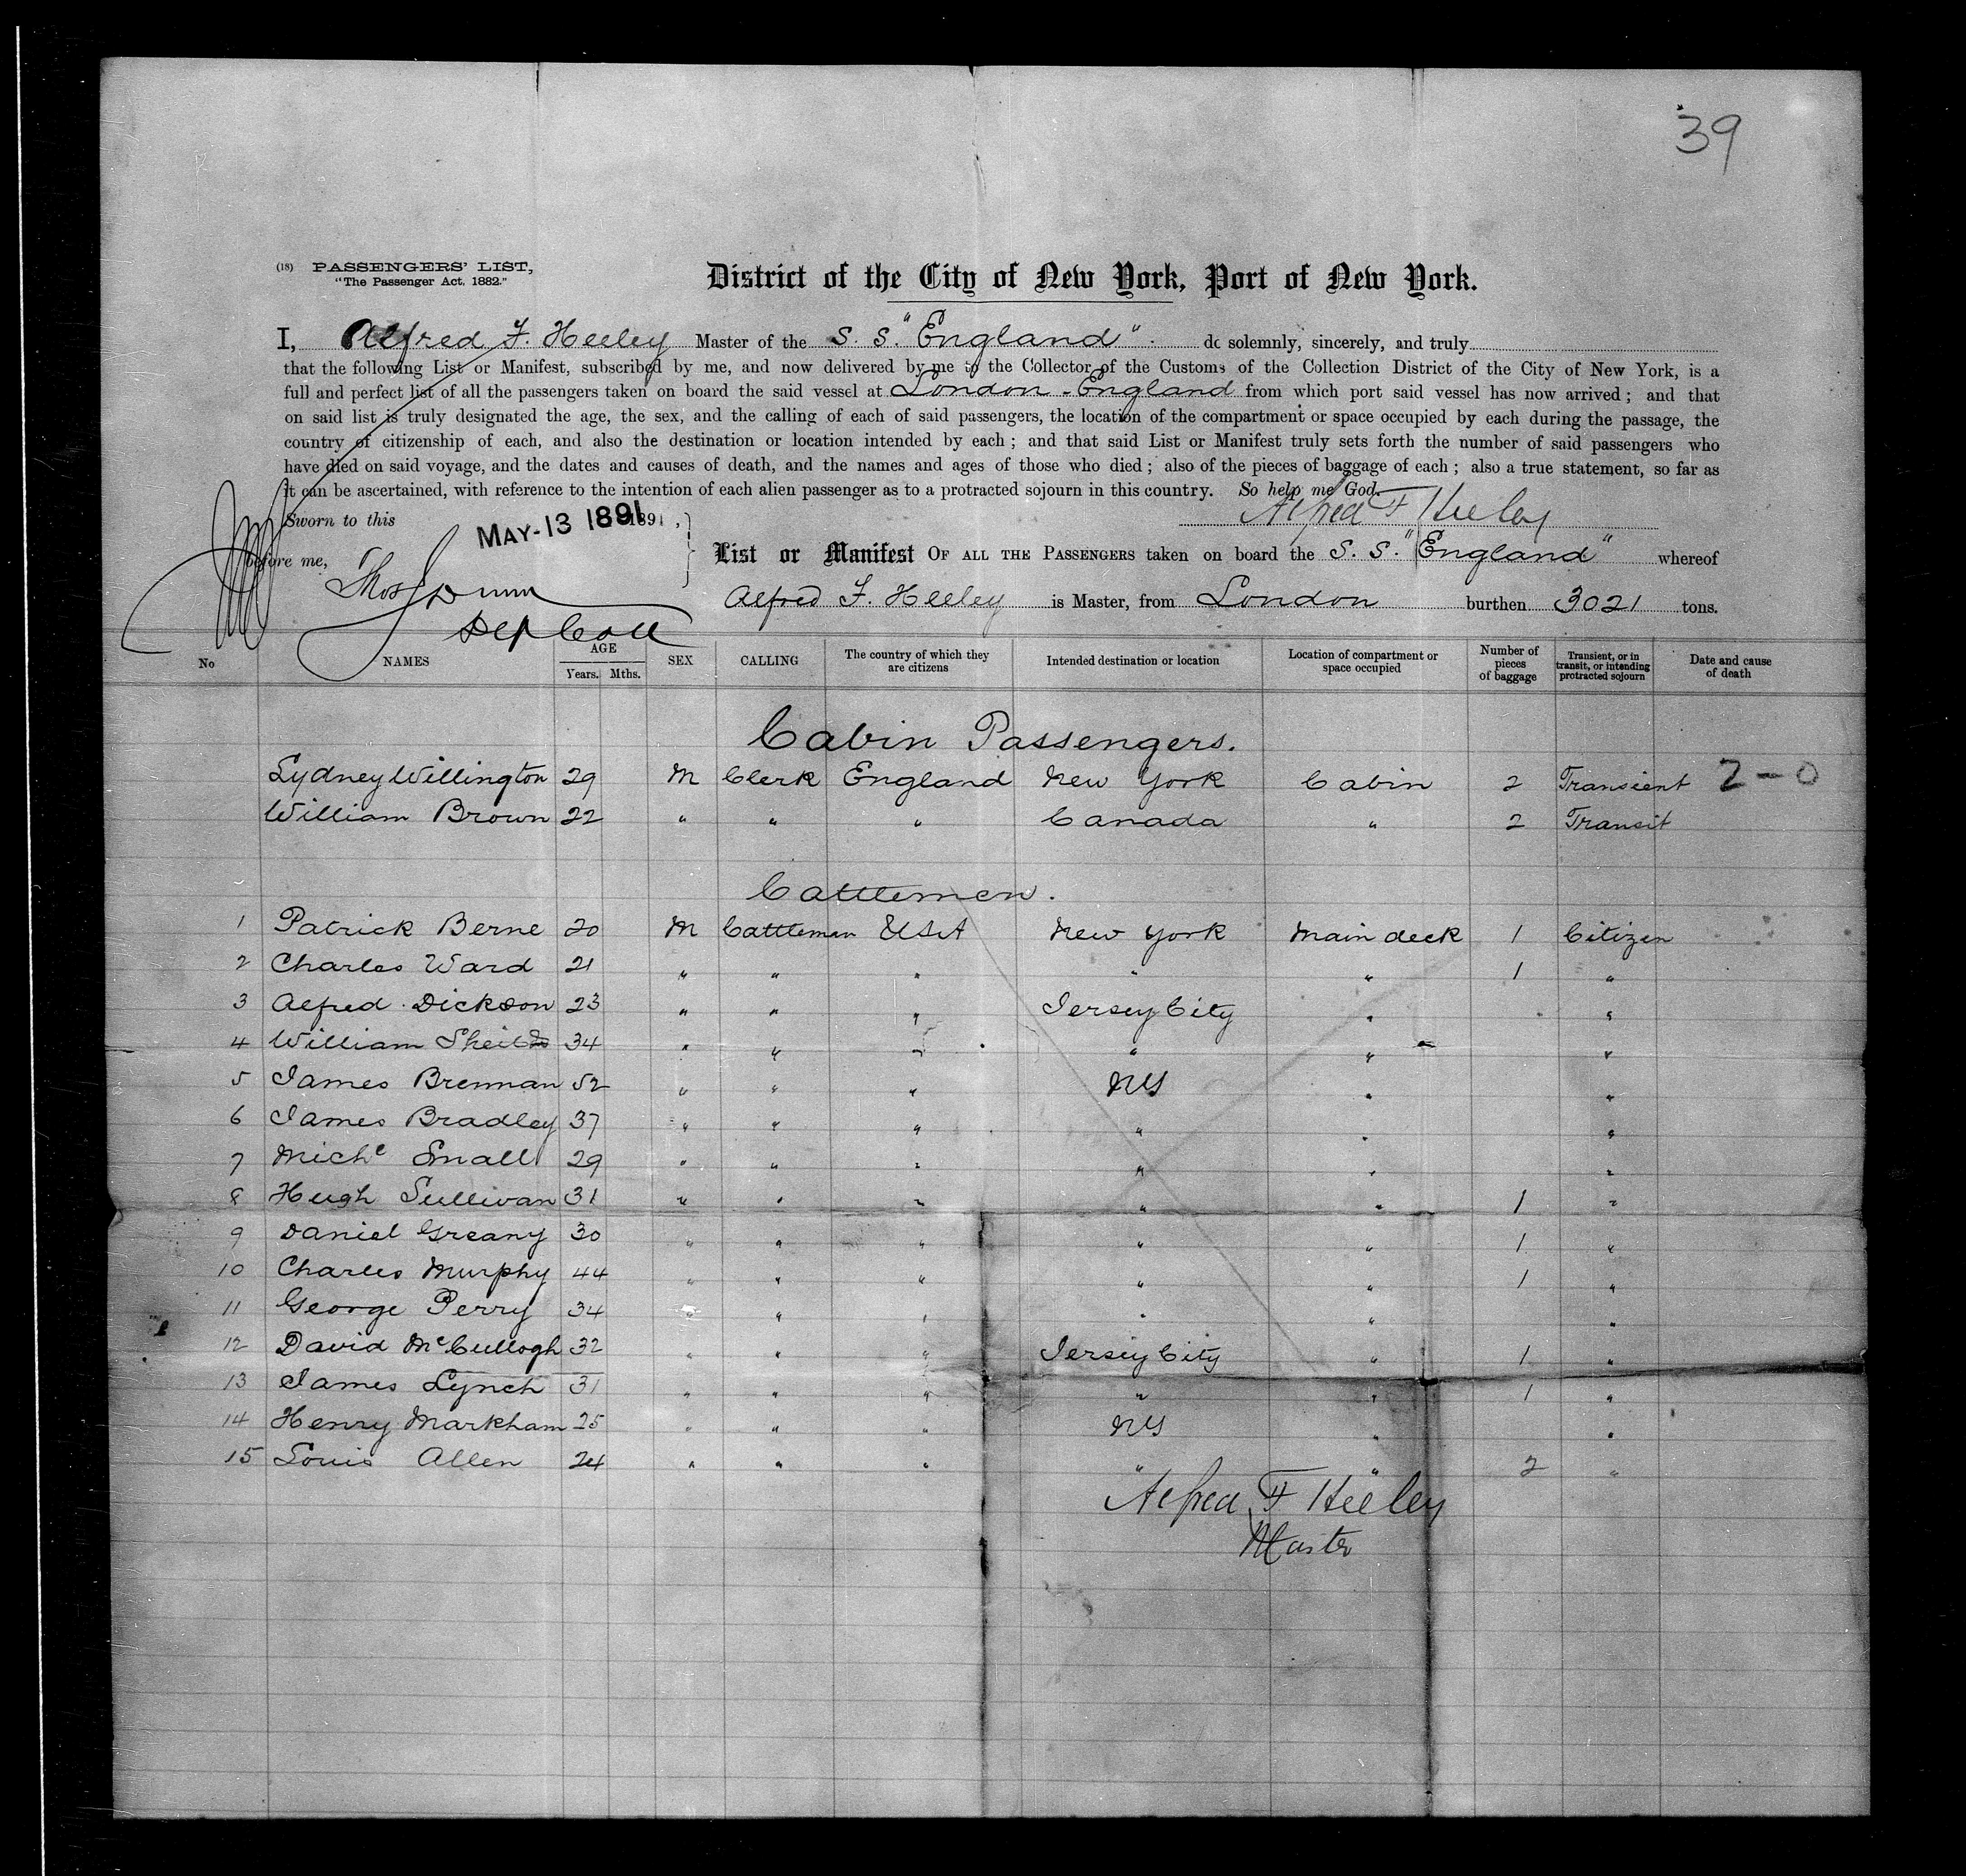 39
(18) PASSENGERS' LIST,
"The Passenger Act, 1882."
District of the City of New York, Port of New York.
I, Alfred F. Heeley Master of the S. S. "England". do solemnly, sincerely, and truly
that the following List or Manifest, subscribed by me, and now delivered by me to the Collector of the Customs of the Collection District of the City of New York, is a
full and perfect list of all the passengers taken on board the said vessel at London - England from which port said vessel has now arrived; and that
on said list is truly designated the age, the sex, and the calling of each of said passengers, the location of the compartment or space occupied by each during the passage, the
country of citizenship of each, and also the destination or location intended by each; and that said List or Manifest truly sets forth the number of said passengers who
have died on said voyage, and the dates and causes of death, and the names and ages of those who died; also of the pieces of baggage of each; also a true statement, so far as
it can be ascertained, with reference to the intention of each alien passenger as to a protracted sojourn in this country. So help me God.
Sworn to this MAY-13 1891 1891, Alfred F Heeley
before me, Thos Dunn
Dep Coll
List or Manifest OF ALL THE PASSENGERS taken on board the S. S. "England" whereof
Alfred F. Heeley is Master, from London burthen 3021 tons.
No NAMES AGE Years. Mths. SEX CALLING The country of which they are citizens Intended destination or location Location of compartment or space occupied Number of pieces of baggage Transient, or in transit, or intending protracted sojourn Date and cause of death
Cabin Passengers.
Sydney Willington 29 M Clerk England New York Cabin 2 Transient 2-0
William Brown 22 " " " Canada " 2 Transit
Cattlemen.
1 Patrick Berne 20 M Cattleman USA New York Main deck 1 Citizen
2 Charles Ward 21 " " " " " 1 "
3 Alfred Dickson 23 " " " Jersey City " "
4 William 34 " " " " " "
5 James Brennan 52 " " " NY " "
6 James Bradley 37 " " " " " "
7 Michl Small 29 " " " " " "
8 Hugh Sullivan 31 " " " " " 1 "
9 Daniel Greany 30 " " " " " 1 "
10 Charles Murphy 44 " " " " " 1 "
11 George Perry 34 " " " " " "
12 David McCullogh 32 " " " Jersey City " 1 "
13 James Lynch 31 " " " " " 1 "
14 Henry Markham 25 " " " NY " "
15 Louis Allen 24 " " " " " 2 "
Alfred F Heeley
Master